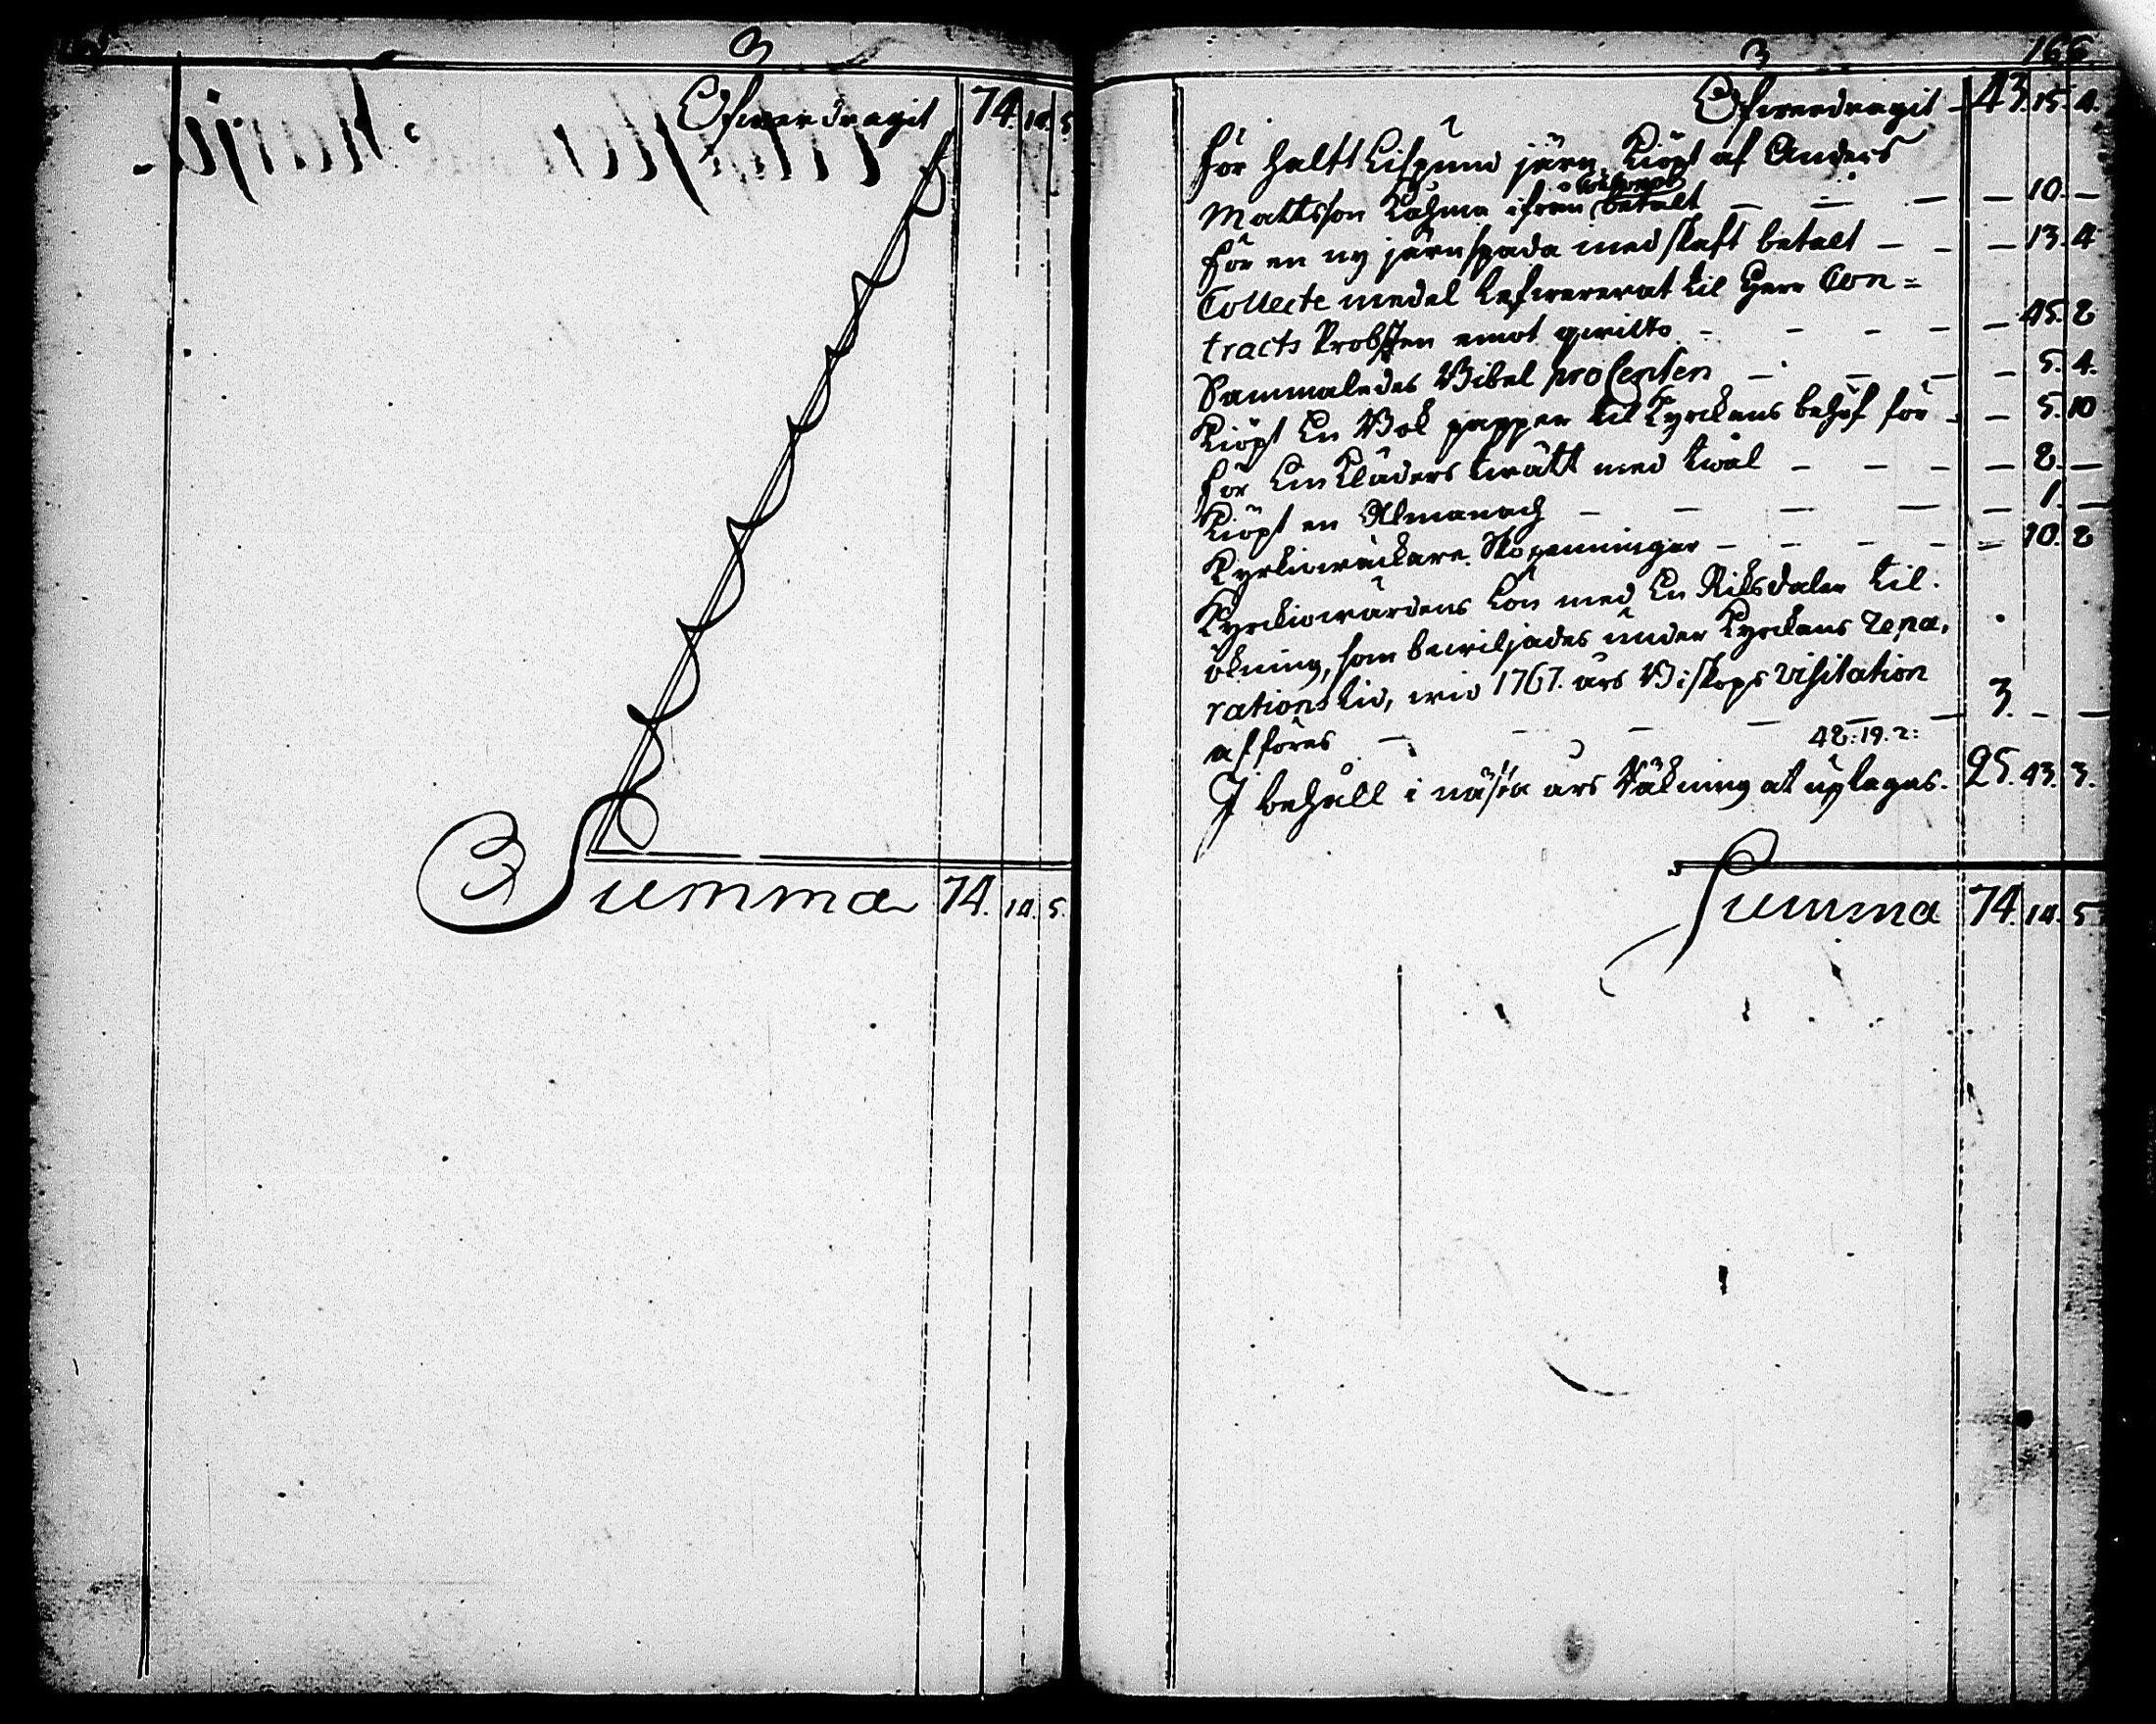 3
Öfwerdragit 74. 14. 5.
Summa 74. 14. 5.
3
166.
Öfwerdragit - 43. 15. 4.
För halft Lispund järn, Kiöpt af Anders
Mattsson ifrån betalt — — — — 10. —
För en ny järnspada med skaft betalt — — — 13. 4
Collecte medel Lefwererat til Herr Con=
tracts Probsten emot qwitto - - - - — 45. 2
Sammaledes Bibel procenten — - — — — 5. 4.
Kiöpt En Bok papper til Kyrckans behof för - — 5. 10
För Lin Kläders twätt med twål — — — — 2. —
Kiöpt en Almanach — — — — — 1. —
Skopenningar — — — — — 10. 2
Kyrckiowärdens Lön med En Riksdaler til
ökning, som bewiljades under Kyrckans repa,
rations tid, wid 1767. års Biskops visitation
afföres — — — — — — 3. - —
48: 19. 2:
I behåll i nästa års Räkning at uptagas. 25. 43. 3.
Summa 74. 14. 5